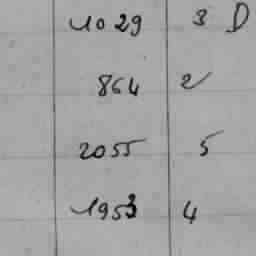 1029 3 D
864 2
2055 5
1953 4